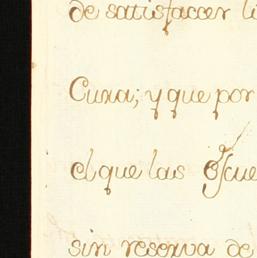 de satisfaccer
Cura; y que por
el que las
sin reserva de